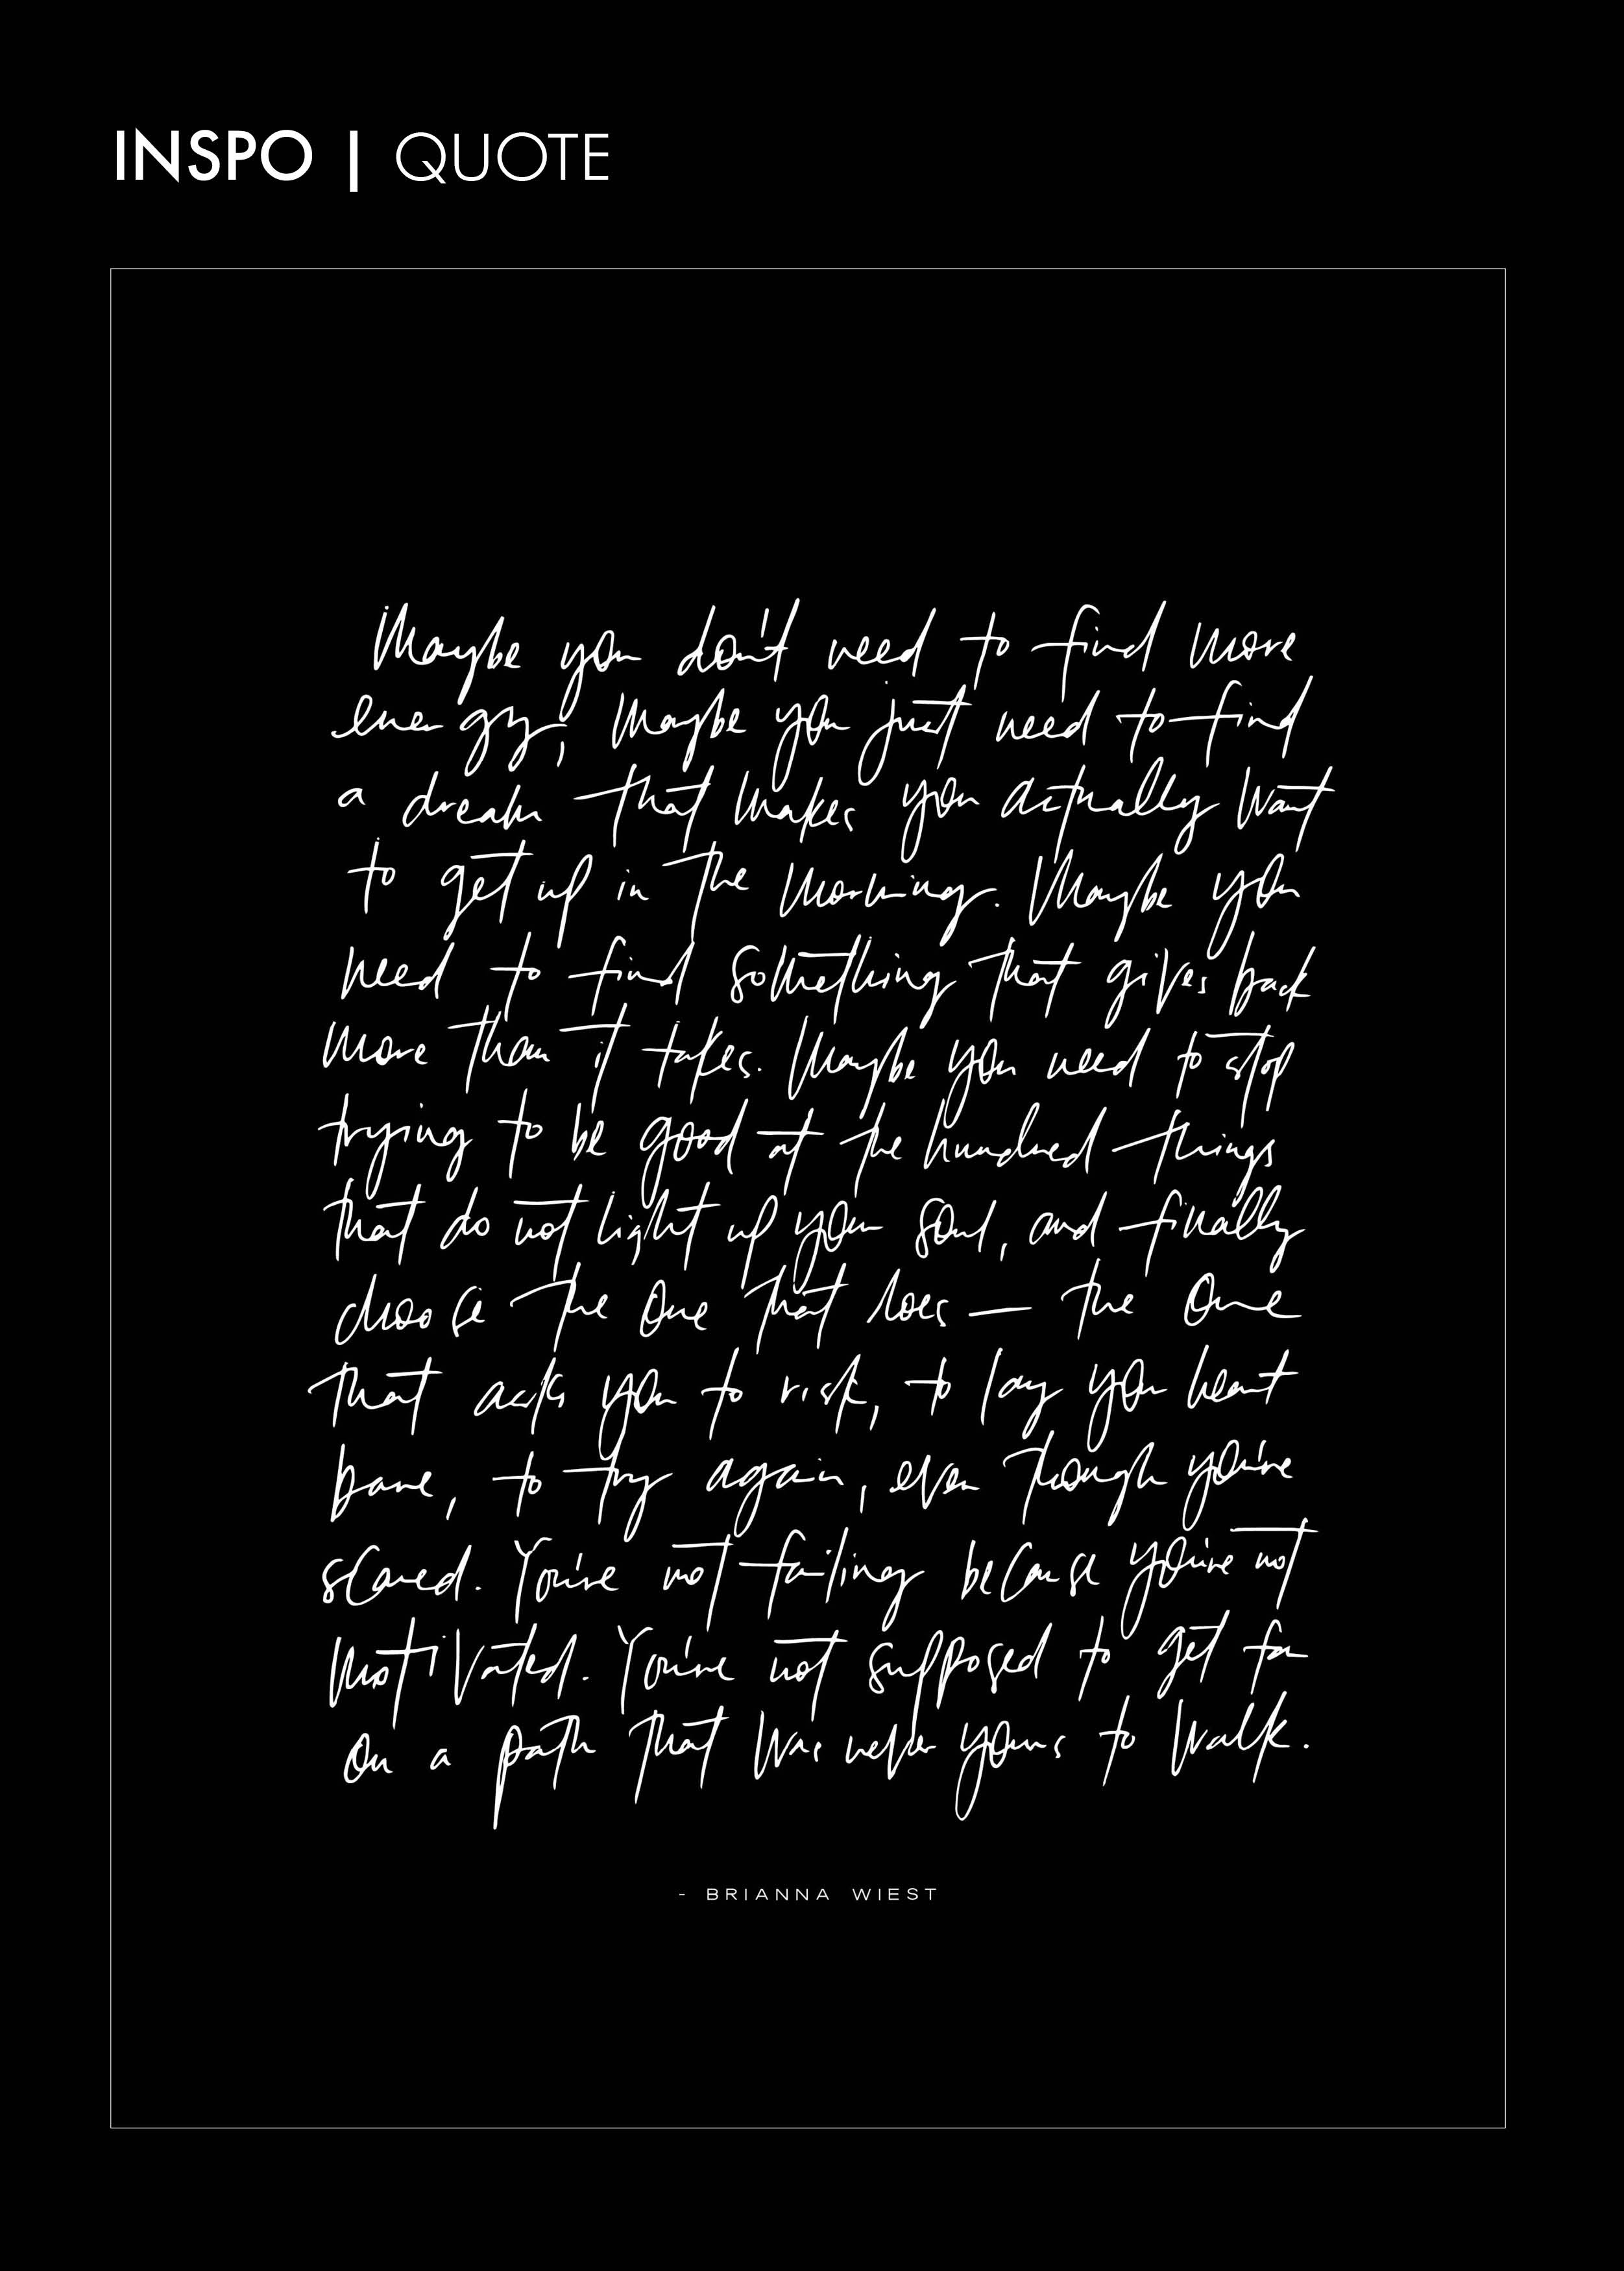 INSPO | QUOTE
Maybe you don't need to find more
energy, Maybe you just need to find
a dream that makes you actually want
to get up in the morning. Maybe you
need to find something that gives back
more than it takes. Maybe you need to stop
trying to be good at the hundred things
that do not light up your soul, and finally
choose the one that does — the one
that asks you to risk, to lay your heart
bare, to try again, even though you're
scared. You're not failing because you're not
motivated. You're not supposed to get far
on a path that was never yours to walk.
- BRIANNA WIEST